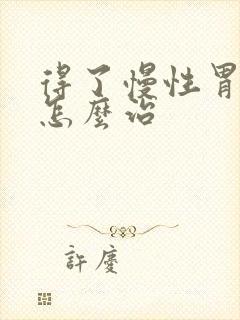 得了慢性胃
怎麼治
許慶